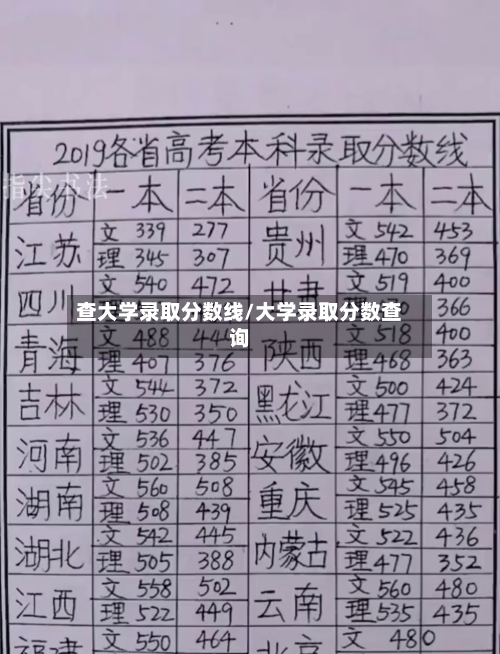 2019各省高考本科录取分数线
指尖书法
省份 一本 二本 省份 一本 二本
江苏 文 339 277 贵州 文 542 453
理 345 307 理 470 369
四川 文 540 472 甘肃 文 519 400
366
查大学录取分数线/大学录取分数查
询
青海 文 488 陕西 文 518 400
理 407 376 理 468 363
吉林 文 544 372 黑龙江 文 500 424
理 530 350 理 477 372
河南 文 536 447 安徽 文 550 504
理 502 385 理 496 426
湖南 文 560 508 重庆 文 545 458
理 508 439 理 525 435
湖北 文 542 445 内蒙古 文 522 436
理 505 388 理 477 352
江西 文 558 502 云南 文 560 480
理 522 449 理 535 435
福建 文 550 464 北京 文 480